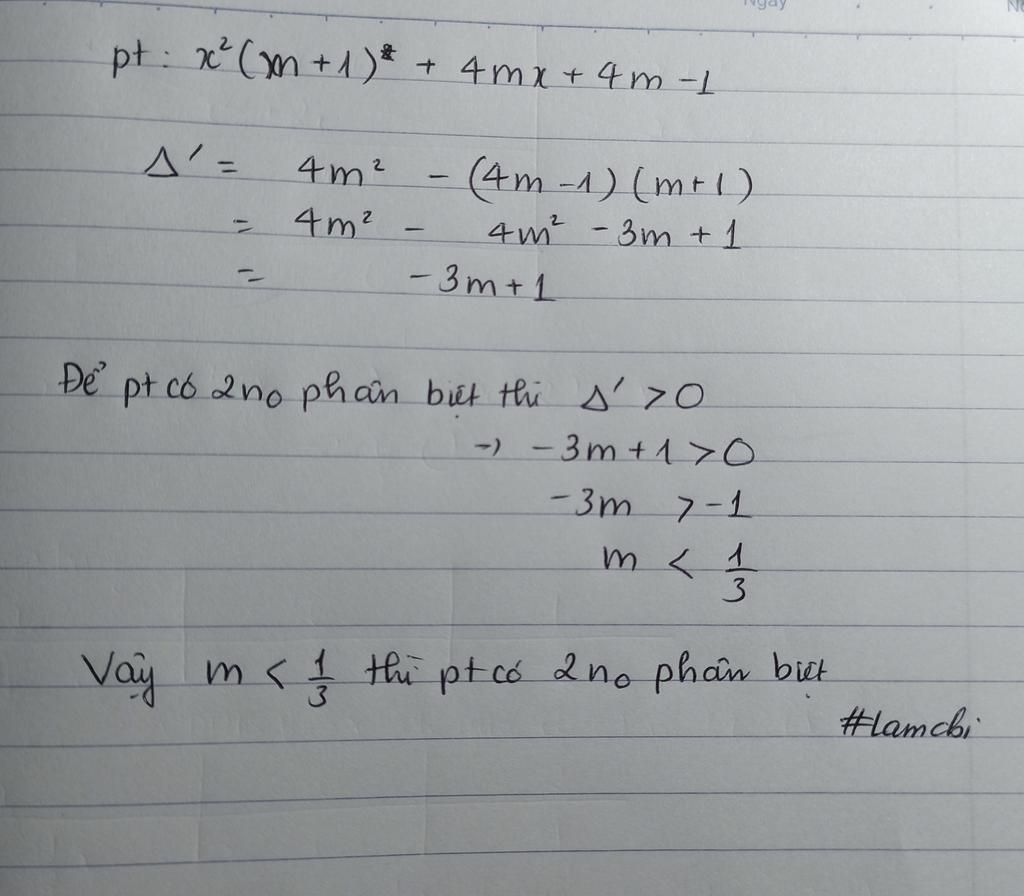 Ngày
pt : x²(m+1) + 4mx + 4m -1
Δ' = 4m² - (4m -1)(m+1)
= 4m² - 4m² -3m + 1
= -3m+1
Để pt có 2no phân biệt thì Δ' > 0
→ -3m + 1 > 0
-3m > -1
m < 1/3
Vậy m < 1/3 thì pt có 2no phân biệt
#lamchi